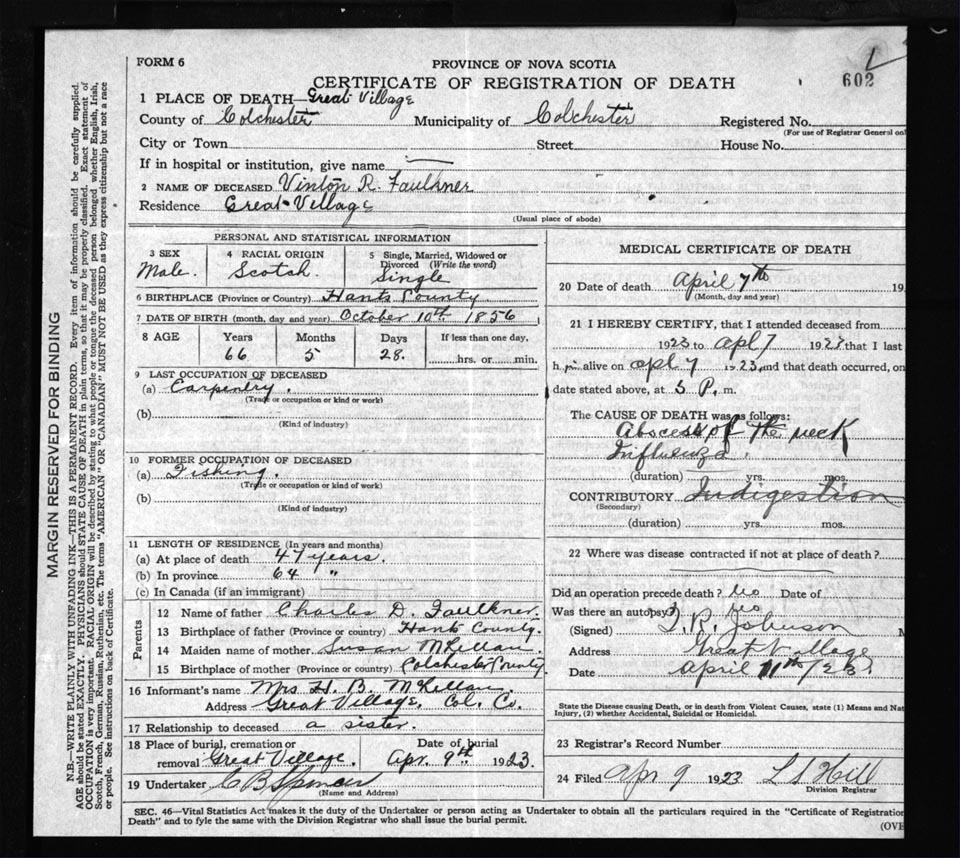 FORM 6
PROVINCE OF NOVA SCOTIA
602
CERTIFICATE OF REGISTRATION OF DEATH
1 PLACE OF DEATH—Great Village
County of Colchester Municipality of Colchester Registered No.
(For use of Registrar General on
City or Town Street House No.
If in hospital or institution, give name
2 NAME OF DECEASED Vinton R. Faulkner
Residence Great Village
(Usual place of abode)
PERSONAL AND STATISTICAL INFORMATION
3 SEX
Male.
4 RACIAL ORIGIN
Scotch.
5 Single, Married, Widowed or
Divorced (Write the word)
Single
6 BIRTHPLACE (Province or Country) Hants County.
7 DATE OF BIRTH (month, day and year) October 10th 1856
8 AGE Years Months Days If less than one day,
66 5 28. hrs. or min.
9 LAST OCCUPATION OF DECEASED
(a) Carpentry.
(Trade or occupation or kind or work)
(b)
(Kind of industry)
10 FORMER OCCUPATION OF DECEASED
(a) Fishing.
(Trade or occupation or kind or work)
(b)
(Kind of industry)
11 LENGTH OF RESIDENCE (In years and months)
(a) At place of death 47 years.
(b) In province 64 "
(c) In Canada (if an immigrant)
Parents
12 Name of father Charles D. Faulkner.
13 Birthplace of father (Province or country) Hants County.
14 Maiden name of mother Susan McLellan.
15 Birthplace of mother (Province or country) Colchester County
16 Informant's name Mrs H. B. McLellan.
Address Great Village, Col. Co.
17 Relationship to deceased a sister.
18 Place of burial, cremation or
removal Great Village.
Date of burial
Apr. 9th 1923.
19 Undertaker C B Spencer
(Name and Address)
MEDICAL CERTIFICATE OF DEATH
20 Date of death April 7th 19
(Month, day and year)
21 I HEREBY CERTIFY, that I attended deceased from
1923 to apl 7 1923 that I last
h im alive on apl 7 1923, and that death occurred, on
date stated above, at 3 P. m.
The CAUSE OF DEATH was as follows:
Abscess of the neck
Influenza.
(duration) yrs. mos.
CONTRIBUTORY Indigestion
(Secondary)
(duration) yrs. mos.
22 Where was disease contracted if not at place of death?
Did an operation precede death? no Date of
Was there an autopsy? no
(Signed) T. R. Johnson M
Address Great Village
Date April 11th /23
State the Disease causing Death, or in death from Violent Causes, state (1) Means and Nat
Injury, (2) whether Accidental, Suicidal or Homicidal.
23 Registrar's Record Number
24 Filed Apr 9 1923 L S Hill
Division Registrar
SEC. 46—Vital Statistics Act makes it the duty of the Undertaker or person acting as Undertaker to obtain all the particulars required in the "Certificate of Registration
Death" and to fyle the same with the Division Registrar who shall issue the burial permit.
(OVE
MARGIN RESERVED FOR BINDING
N.B.—WRITE PLAINLY WITH UNFADING INK—THIS IS A PERMANENT RECORD. Every item of information should be carefully supplied.
AGE should be stated EXACTLY. PHYSICIANS should STATE CAUSE OF DEATH in plain terms, so that it may be properly classified. Exact statement of
OCCUPATION is very important. RACIAL ORIGIN will be described by stating to what people or tongue the deceased person belonged whether English, Irish,
Scotch, French, German, Russian, Ruthenian, etc. The terms "AMERICAN" OR "CANADIAN" MUST NOT BE USED as they express citizenship but not a race
or people. See instructions on back of Certificate.